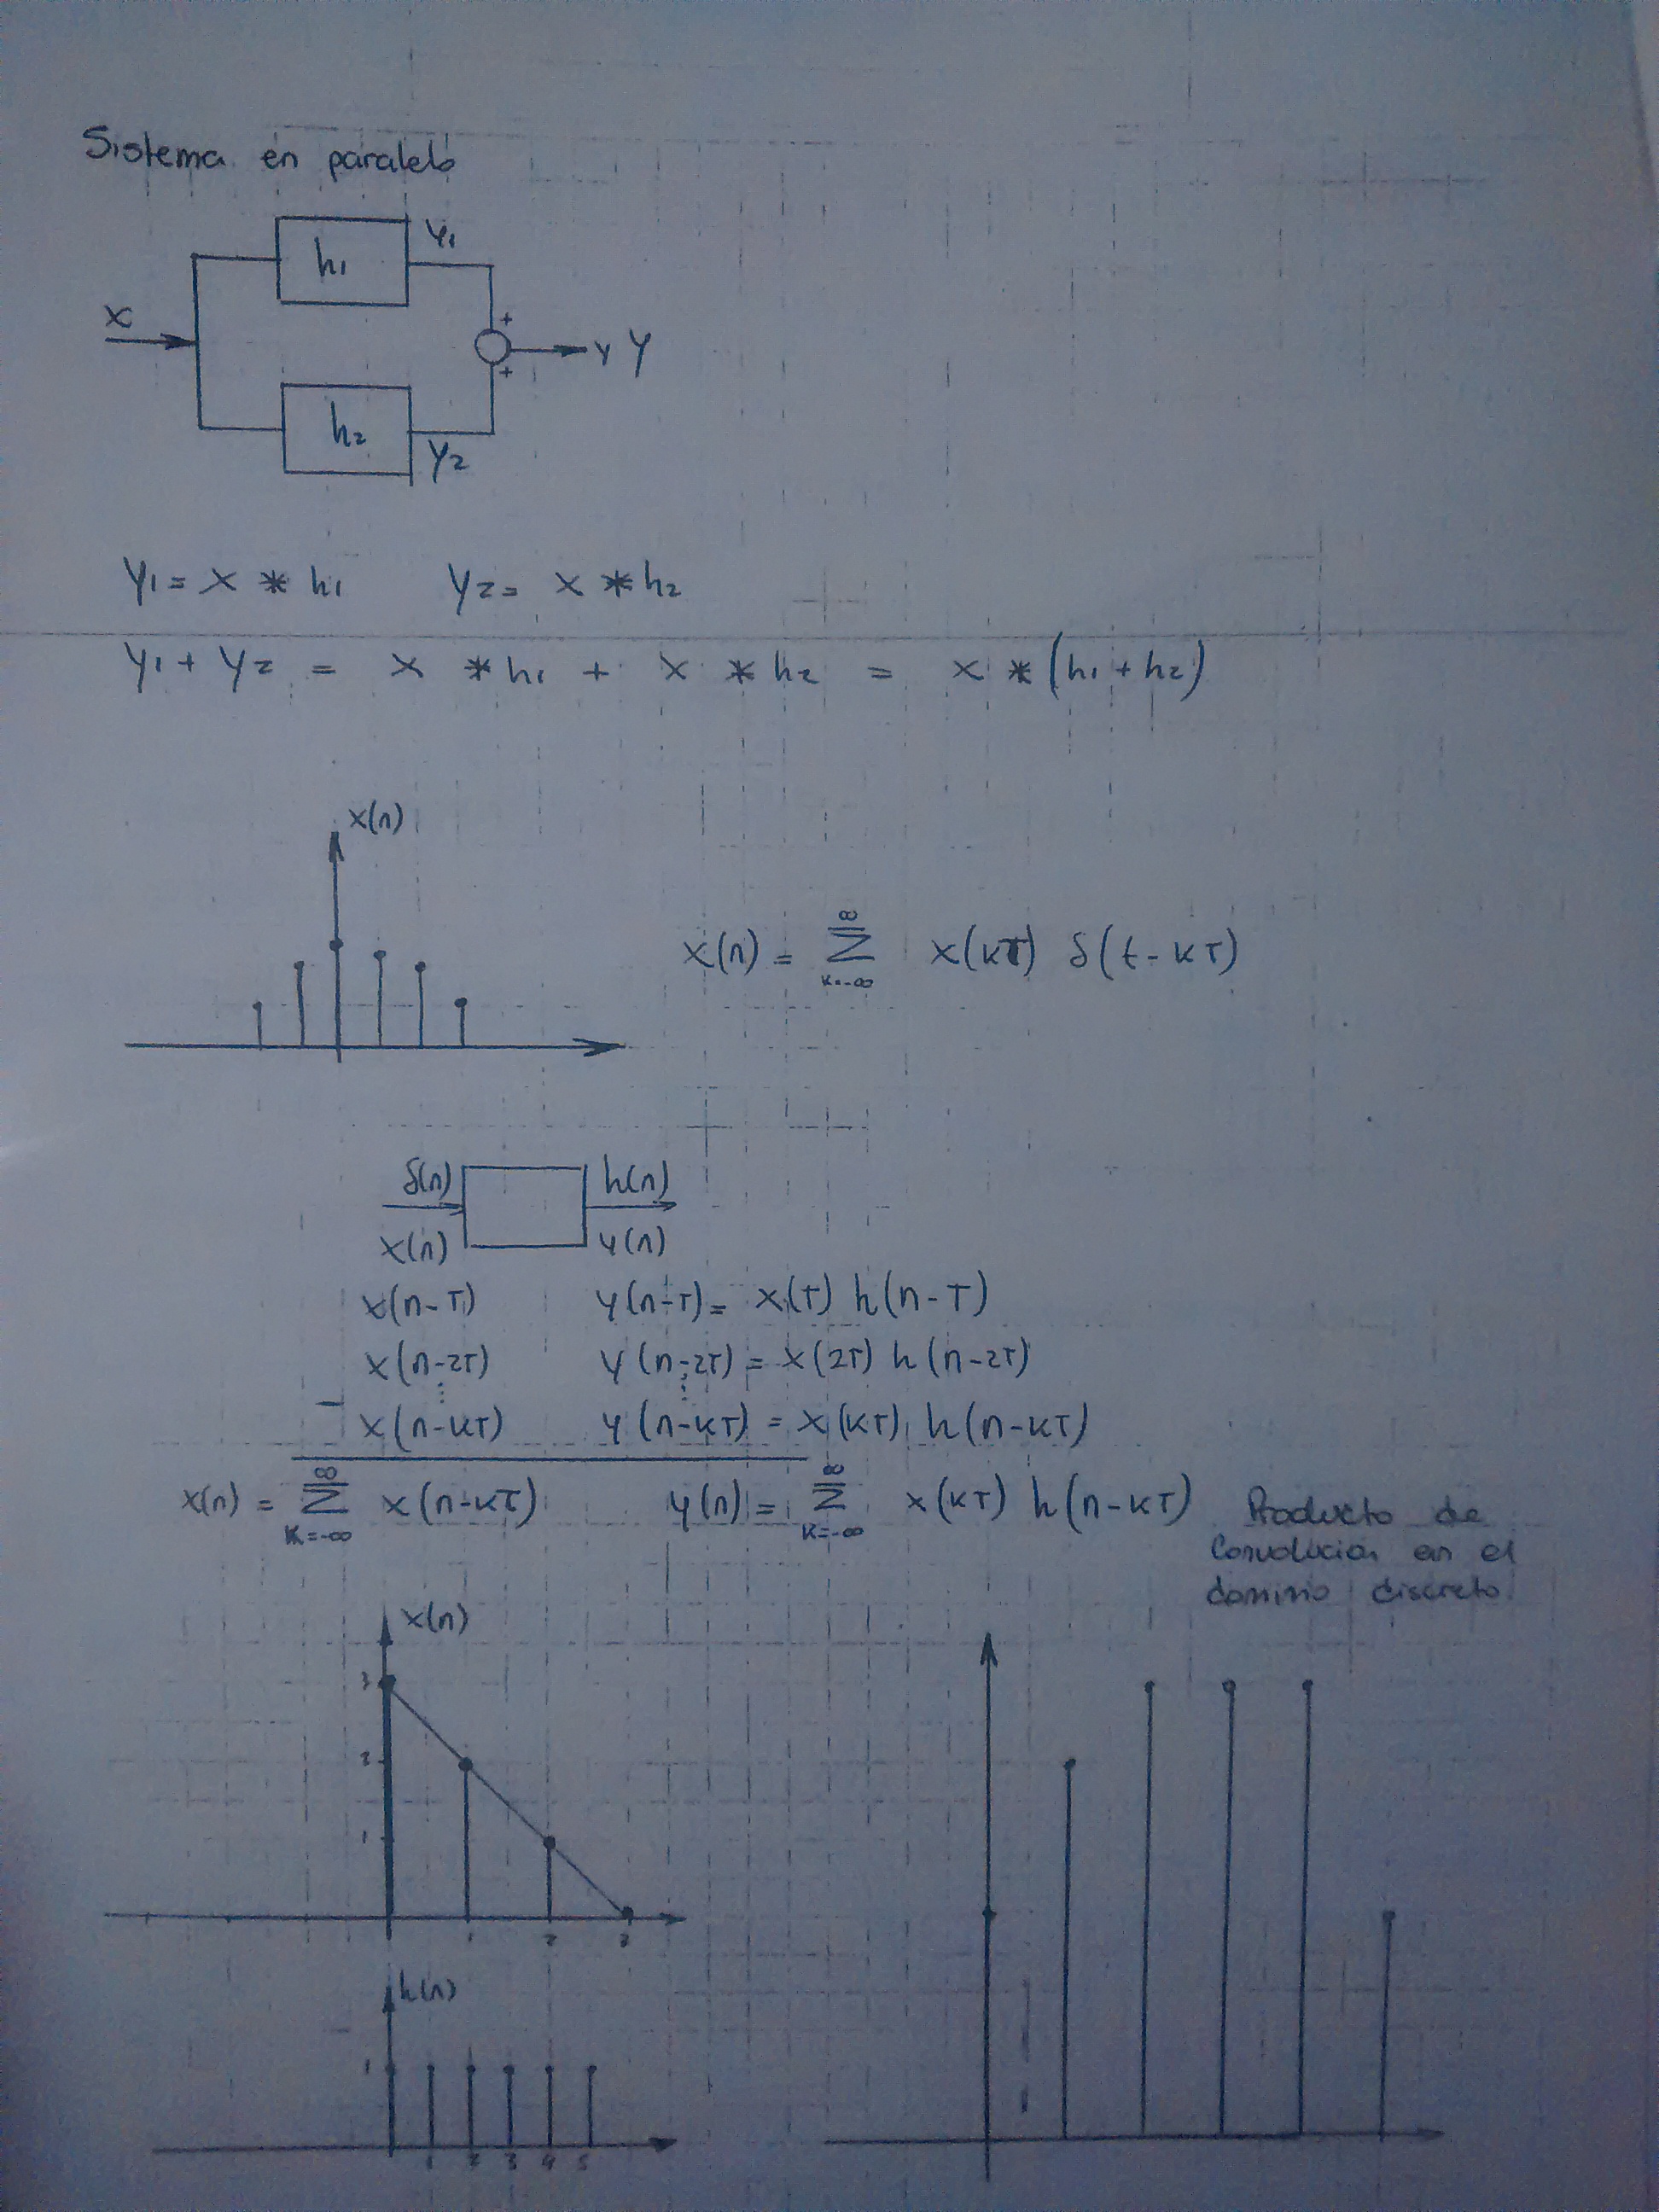 Sistema en paralelo
h1 Y1
x
+
+
y Y
h2 Y2
Y1 = x * h1 Y2 = x * h2
Y1 + Y2 = x * h1 + x * h2 = x * (h1 + h2)
x(n)
x(n) = ∑ k=-∞ ∞ x(kT) δ(t - kT)
δ(n) h(n)
x(n) y(n)
x(n-T) y(n-T) = x(T) h(n-T)
x(n-2T) y(n-2T) = x(2T) h(n-2T)
x(n-kT) y(n-kT) = x(kT) h(n-kT)
x(n) = ∑ k=-∞ ∞ x(n-kT) y(n) = ∑ k=-∞ ∞ x(kT) h(n-kT) Producto de
Convolucion en el
dominio discreto
x(n)
3
2
1
1 2 3
h(n)
1
1 2 3 4 5